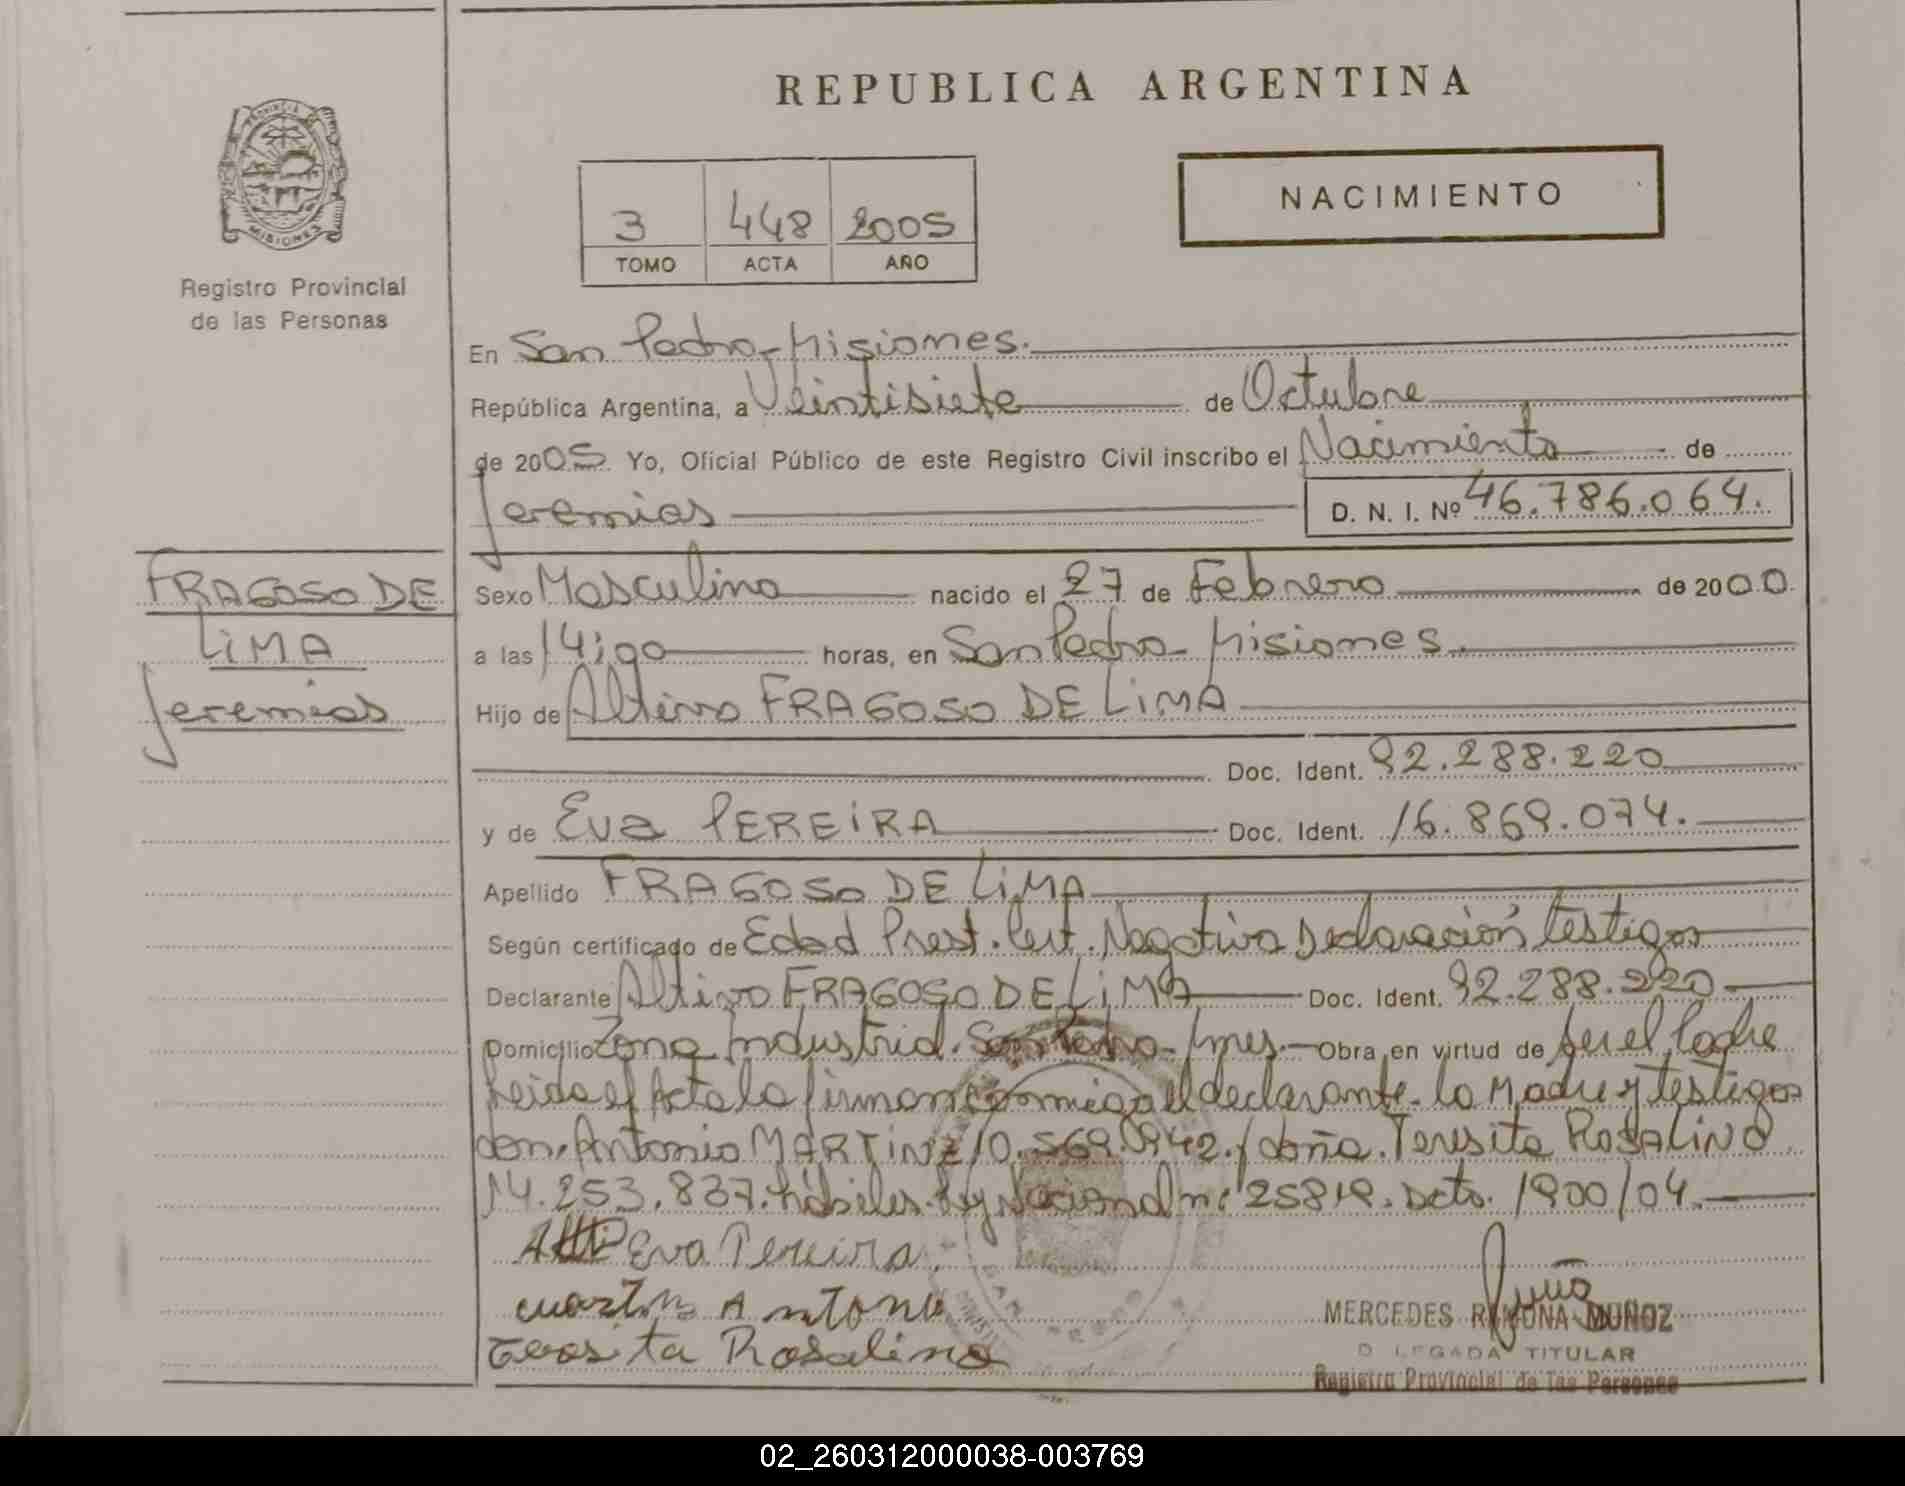 REPUBLICA ARGENTINA
PROVINCIA
MISIONES
Registro Provincial
de las Personas
3 448 2005
TOMO ACTA AÑO
NACIMIENTO
En San Pedro - Misiones.
República Argentina, a Veintisiete de Octubre
de 2005. Yo, Oficial Público de este Registro Civil inscribo el Nacimiento de
Jeremias D. N. I. Nº 46.786.064.
FRAGOSO DE
LiMA
Jeremias
Sexo Masculino nacido el 27 de Febrero de 2000.
a las 14:00 horas, en San Pedro - Misiones.
Hijo de Altivo FRAGOSO DE LiMA
Doc. Ident. 92.288.220
y de Eva PEREiRA Doc. Ident. 16.869.074.
Apellido FRAGOSO DE LiMA
Según certificado de Edad Prest. Cert. Negativo Declaración testigos
Declarante Altivo FRAGOSO DE LiMA Doc. Ident. 92.288.220
Domicilio Zona Industrial. San Pedro - Mnes. Obra en virtud de ser el Padre
Leida el Acta la firman conmigo el declarante. la Madre y testigos
don. Antonio MARTiNZ 10.569.942. / doña. Teresita ROSALiNO
14.253.837. hábiles. Ley Nacional nº 25819. Dcto. 1900/04.
Alti Eva Pereira
Antonio
Rosalino
MERCEDES RAMONA MUÑOZ
DELEGADA TITULAR
Registro Provincial de las Personas
02_260312000038-003769